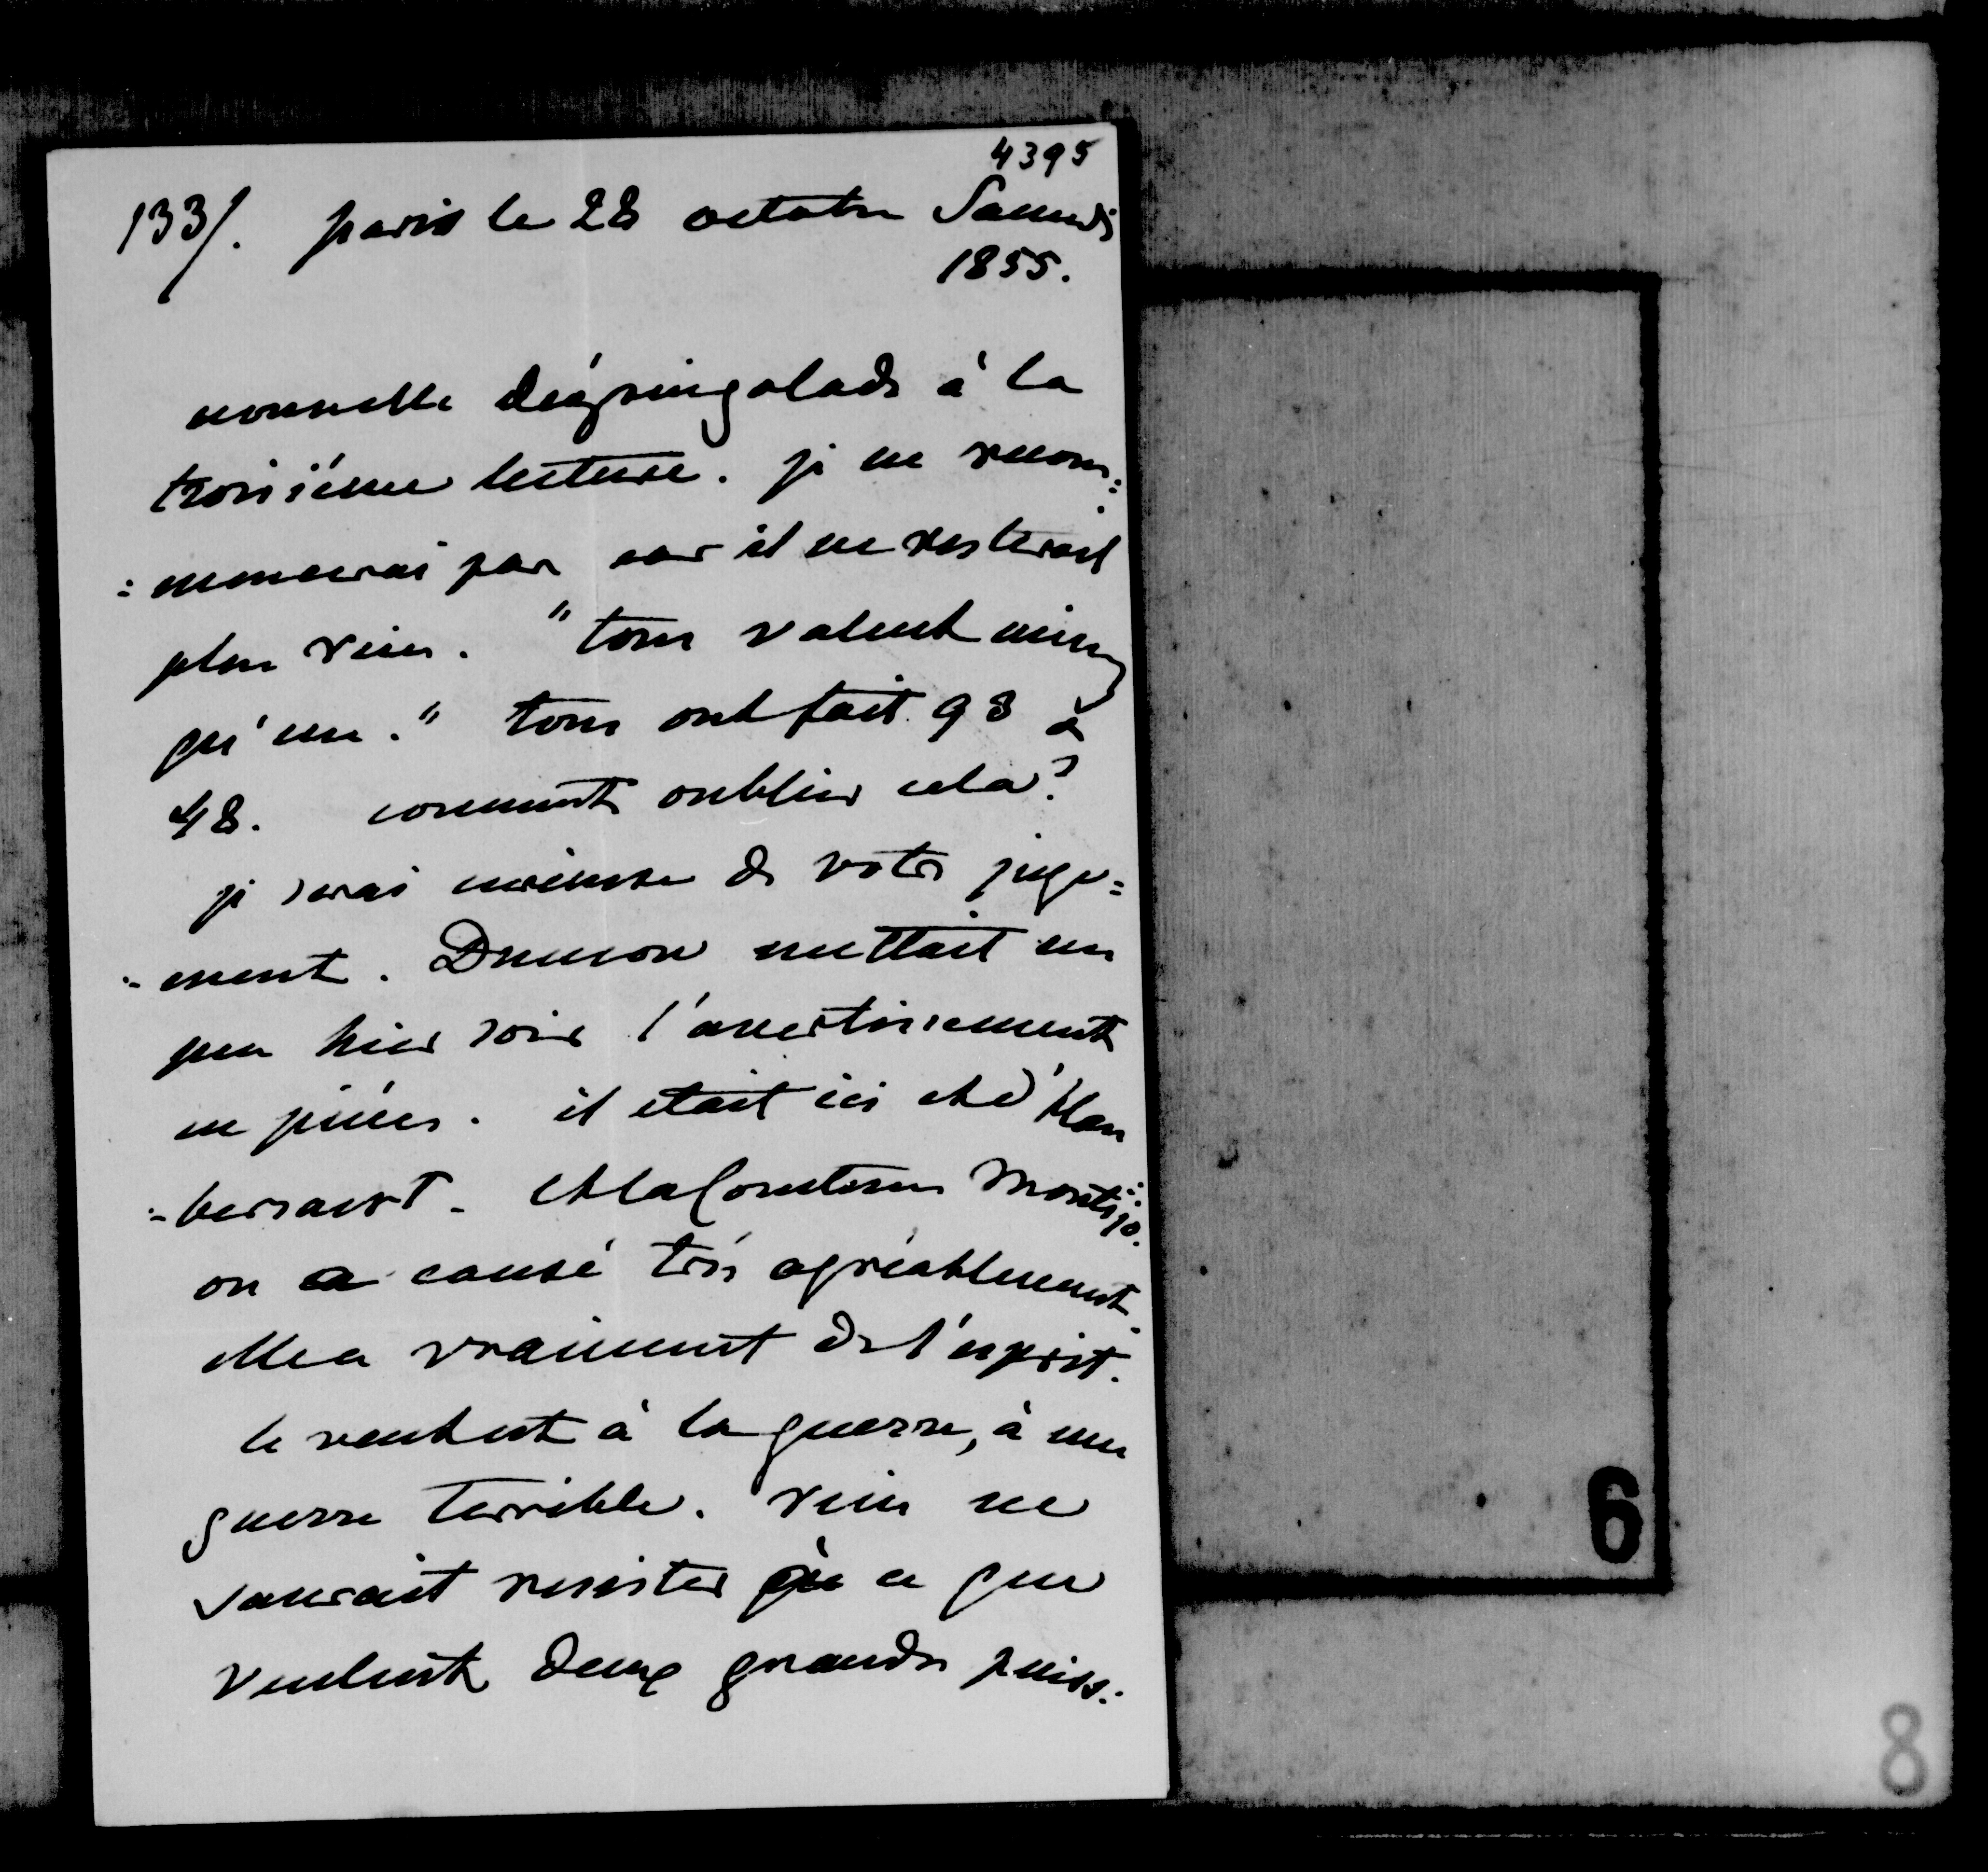 4395
133/. paris le 28 octobre Samedi
1855.
nouvelle dégringolade à la
troisième lecture. je ne recom=
=mencerai pas car il ne resterait
plus rien. "tous valent mieux
qu'un." tous ont fait 93 &
48. comment oublier cela?
je serai curieuse de votre juge=
=ment. Dumon mettait un
peu hier soir l'avertissement
en pièces. il etait ici et d'Hau
=bersaert. et la Comtesse Montijo.
on a causé très agréablement.
elle a vraiment de l'esprit.
le vent est à la guerre, à une
guerre terrible. rien ne
saurait resister à ce que
veulent deux grandes puiss:
6
8